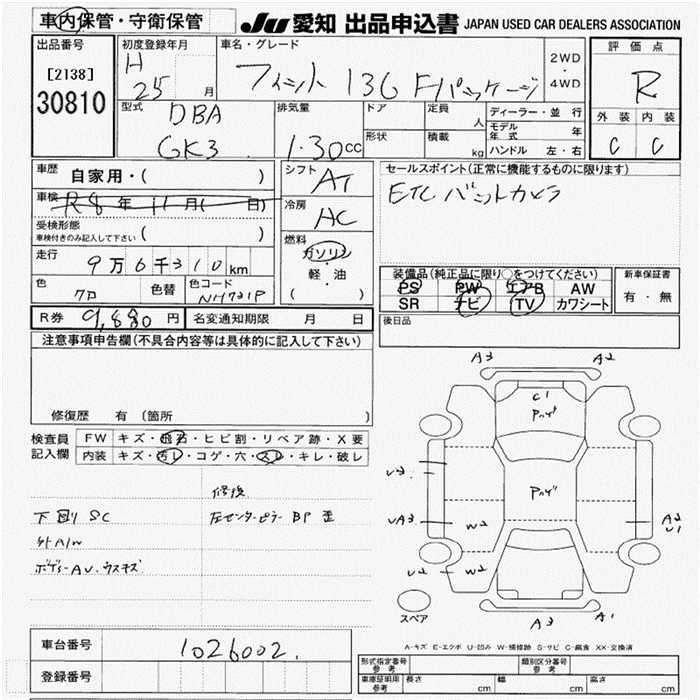 車内保管・守衛保管
JU 愛知 出品申込書 JAPAN USED CAR DEALERS ASSOCIATION
出品番号
[2138]
30810
初度登録年月
H
25 月
車名・グレード
フィット 13G Fパッケージ
2WD
・
4WD
評価点
R
外装 内装
C C
型式
DBA
GK3
排気量
1.30 cc
ドア
形状
定員
人
積載
kg
ディーラー・並行
モデル年式 年
ハンドル 左・右
車歴 自家用・( )
車検 R8年11月( 日)
受検形態
車検付きのみ記入して下さい ( )
走行 9万6千310km
色 クロ 色替
色コード
NH731P
シフト
AT
冷房
AC
燃料
ガソリン
・
軽・油
( )
セールスポイント(正常に機能するものに限ります)
ETC バットカメラ
装備品(純正品に限り○をつけてください)
PS PW エアB AW
SR ナビ TV カワシート
新車保証書
有・無
R券 9,880円 名変通知期限 月 日
後日品
注意事項申告欄(不具合内容等は具体的に記入して下さい)
修復歴 有 (箇所 )
検査員
記入欄
FW キズ・飛石・ヒビ割・リペア跡・X要
内装 キズ・汚レ・コゲ・穴・スレ・キレ・破レ
修復
下回り SC 左センターピラー BP 歪
外A/W
ボディーAU.ウスキズ
A3 A2
C1
Pハゲ
U3
Pハゲ
UA3 W2 A2
U1
U2 W2
スペア A3 A1
A-キズ E-エクボ U-凹み W-補修跡 S-サビ C-腐食 XX-交換済
車台番号 1026002.
登録番号
形式指定番号
参考
類別区分番号
参考
車庫証明用
参考
長さ cm 幅 cm 高さ cm